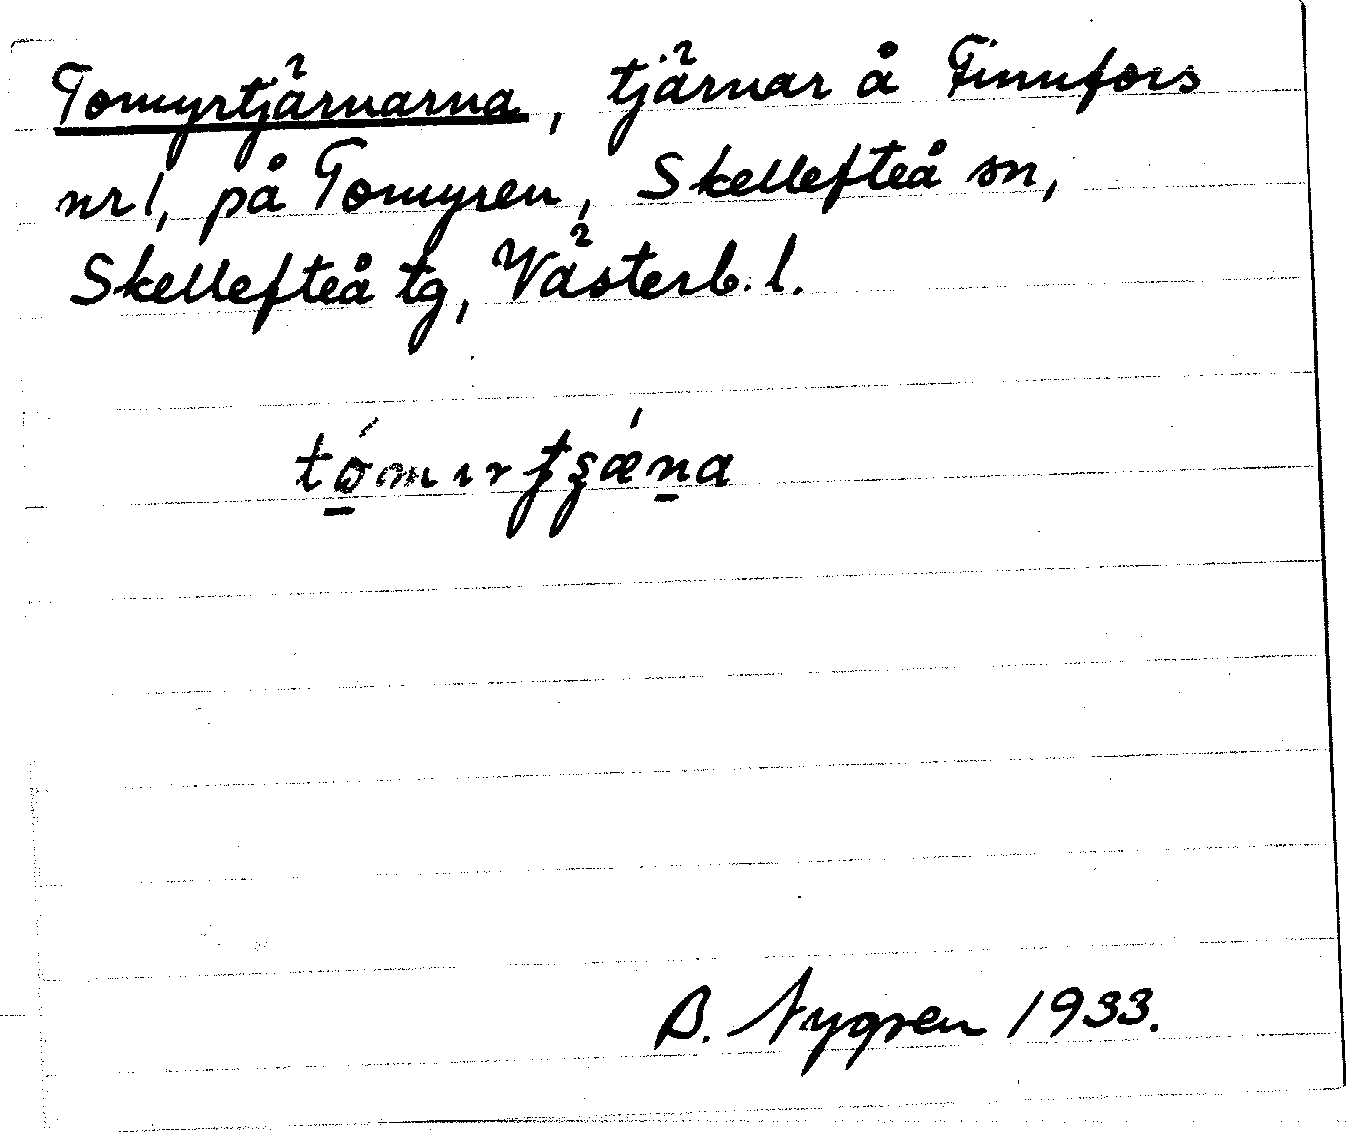 Tomyrtjärnarna, tjärnar å Finnfors
nr 1, på Tomyren, Skellefteå sn,
Skellefteå tg, Västerb. l.
B. Nygren 1933.